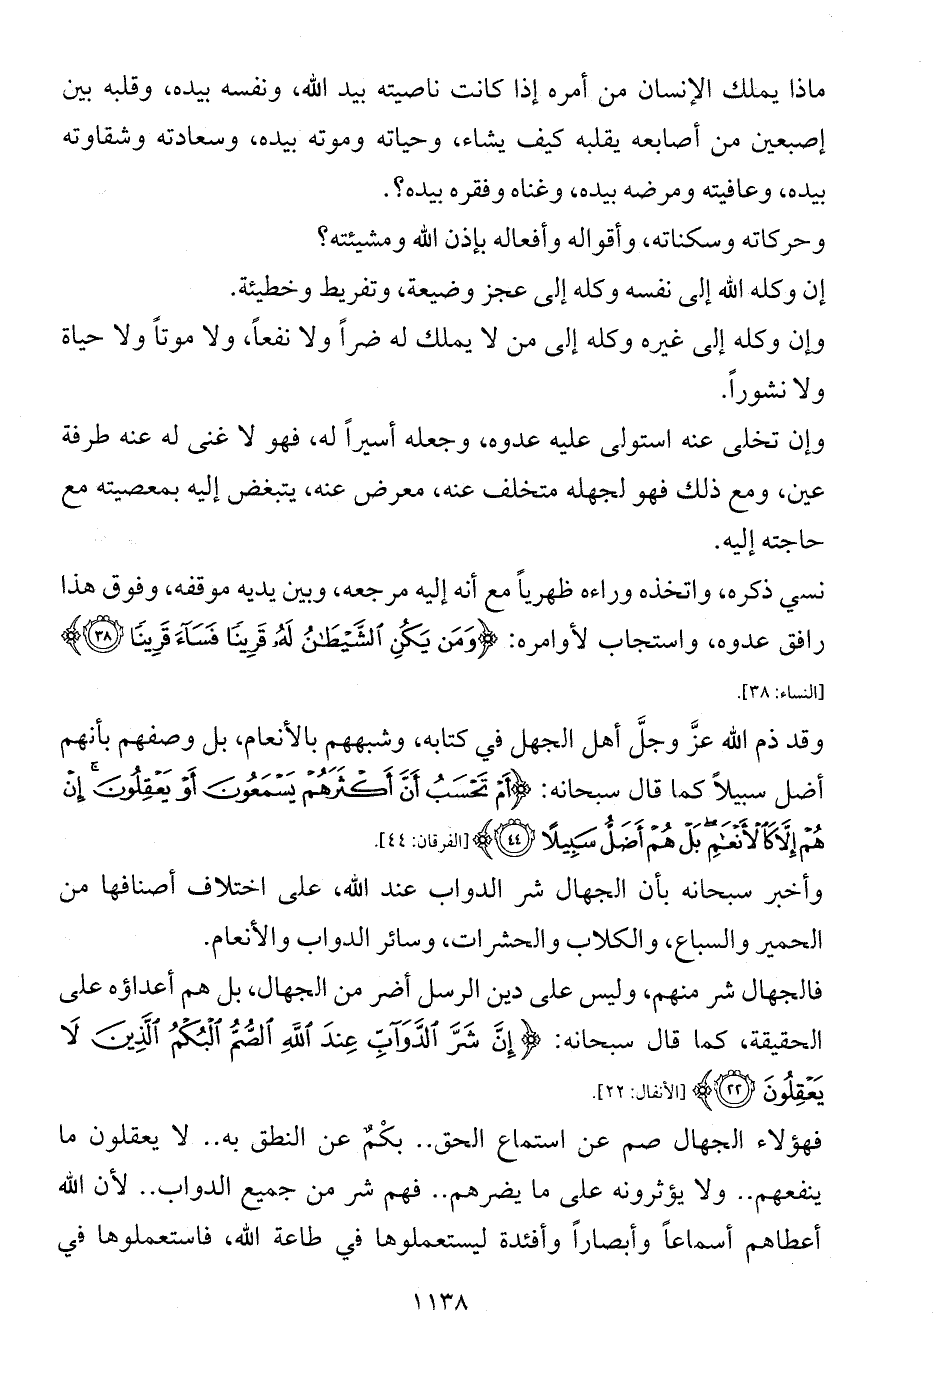 ماذا يملك الإنسان من أمره إذا كانت ناصيته بيد الله، ونفسه بيده، وقلبه بين
إصبعين من أصابعه يقلبه كيف يشاء، وحياته وموته بيده، وسعادته وشقاوته
بيده، وعافيته ومرضه بيده، وغناه وفقره بيده؟.
وحركاته وسكناته، وأقواله وأفعاله بإذن الله ومشيئته؟
إن وكله الله إلى نفسه وكله إلى عجز وضيعة، وتفريط وخطيئة.
وإن وكله إلى غيره وكله إلى من لا يملك له ضراً ولا نفعاً، ولا موتاً ولا حياة
ولا نشوراً.
وإن تخلى عنه استولى عليه عدوه، وجعله أسيراً له، فهو لا غنى له عنه طرفة
عين، ومع ذلك فهو لجهله متخلف عنه، معرض عنه، يتبغض إليه بمعصيته مع
حاجته إليه.
نسي ذكره، واتخذه وراءه ظهرياً مع أنه إليه مرجعه، وبين يديه موقفه، وفوق هذا
رافق عدوه، واستجاب لأوامره: ﴿وَمَن يَكُنِ ٱلشَّيْطَـٰنُ لَهُۥ قَرِينًا فَسَآءَ قَرِينًا ٣٨﴾
[النساء: ٣٨].
وقد ذم الله عزَّ وجلَّ أهل الجهل في كتابه، وشبههم بالأنعام، بل وصفهم بأنهم
أضل سبيلاً كما قال سبحانه: ﴿أَمْ تَحْسَبُ أَنَّ أَكْثَرَهُمْ يَسْمَعُونَ أَوْ يَعْقِلُونَ ۚ إِنْ
هُمْ إِلَّا كَٱلْأَنْعَـٰمِ ۖ بَلْ هُمْ أَضَلُّ سَبِيلًا ٤٤﴾ [الفرقان: ٤٤].
وأخبر سبحانه بأن الجهال شر الدواب عند الله، على اختلاف أصنافها من
الحمير والسباع، والكلاب والحشرات، وسائر الدواب والأنعام.
فالجهال شر منهم، وليس على دين الرسل أضر من الجهال، بل هم أعداؤه على
الحقيقة، كما قال سبحانه: ﴿إِنَّ شَرَّ ٱلدَّوَآبِّ عِندَ ٱللَّهِ ٱلصُّمُّ ٱلْبُكْمُ ٱلَّذِينَ لَا
يَعْقِلُونَ ٢٢﴾ [الأنفال: ٢٢].
فهؤلاء الجهال صم عن استماع الحق.. بكْمٌ عن النطق به.. لا يعقلون ما
ينفعهم.. ولا يؤثرونه على ما يضرهم.. فهم شر من جميع الدواب.. لأن الله
أعطاهم أسماعاً وأبصاراً وأفئدة ليستعملوها في طاعة الله، فاستعملوها في
١١٣٨